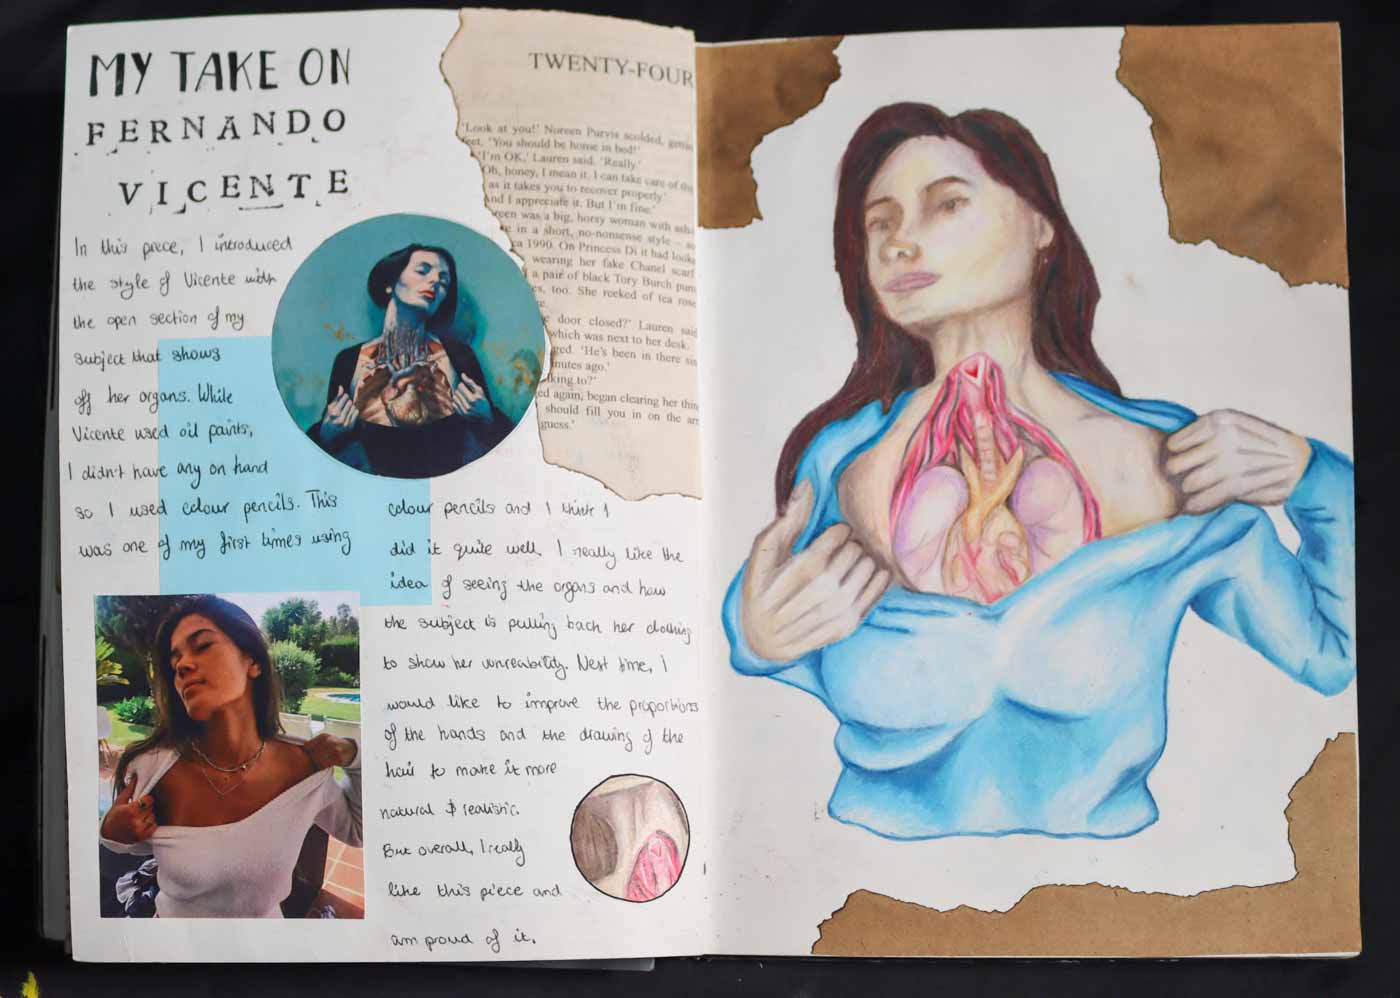 MY TAKE ON
FERNANDO
VICENTE
In this piece, I introduced
the style of Vicente with
the open section of my
subject that shows
off her organs. While
Vicente used oil paints,
I didn't have any on hand
so I used colour pencils. This
was one of my first times using
colour pencils and I think I
did it quite well. I really like the
idea of seeing the organs and how
the subject is pulling back her clothing
to show her Next time, I
would like to improve the proportions
of the hands and the drawing of the
hair to make it more
natural & realistic.
But overall, I really
like this piece and
am proud of it.
TWENTY-FOUR
'Look at you!' Noreen Purvis scolded,
feet. 'You should be home in bed!'
'I'm OK,' Lauren said. 'Really.'
'Oh, honey, I mean it. I can take care of
as it takes you to recover properly'
And I appreciate it. But I'm fine.'
was a big, horsy woman with
in a short, no-nonsense style –
1990. On Princess Di it had
wearing her fake Chanel scarf
a pair of black Tory Burch
too. She reeked of tea
door closed?' Lauren said
which was next to her desk.
'He's been in there
minutes ago.'
again, began clearing her
should fill you in on the
guess.'